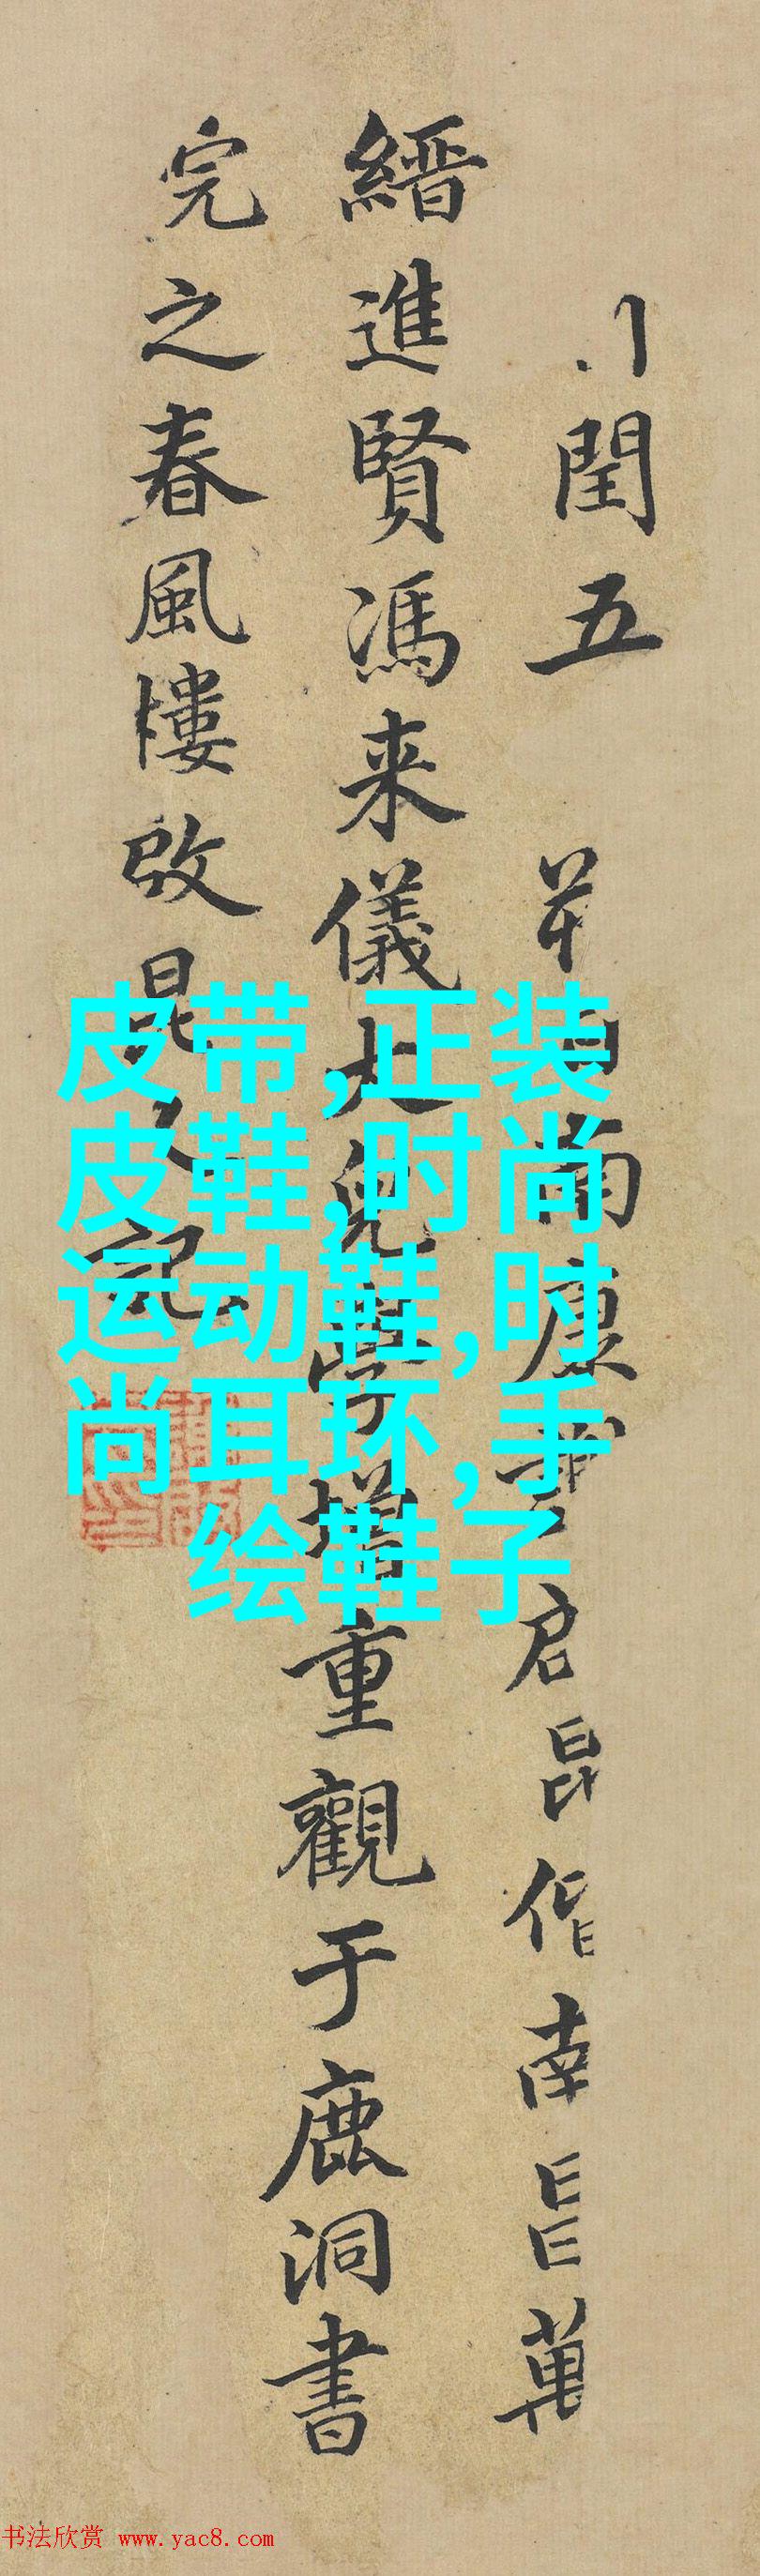 閏五
南康
君昆偕南昌萬
縉進賢馮来儀
大兒學
增重觀于鹿洞書
完之春風樓啟昆
記
皮带,正装
皮鞋,时尚
运动鞋,时
尚耳环,手
绘鞋子
书法欣赏 www.yac8.com